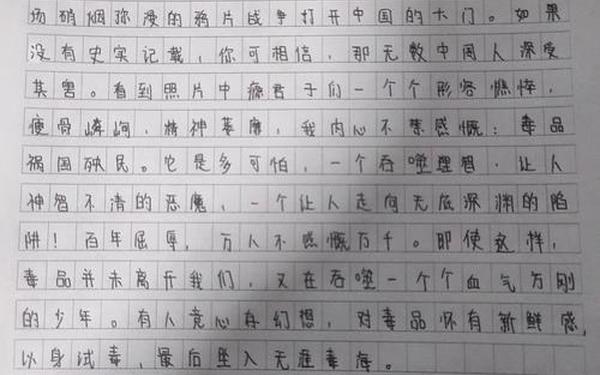 场硝烟弥漫的鸦片战争打开中国的大门。如果
没有史实记载，你可相信，那无数中国人深受
其害。看到照片中瘾君子们一个个形容憔悴，
瘦骨嶙峋，精神萎靡，我内心不禁感慨：毒品
祸国殃民。它是多可怕，一个吞噬理智，让人
神智不清的恶魔，一个让人走向无底深渊的陷
阱！百年屈辱，万人不感慨万千。即使这样，
毒品并未离开我们，又在吞噬一个个血气方刚
的少年。有人竟心存幻想，对毒品怀有新鲜感，
以身试毒，最后坠入无涯毒海。